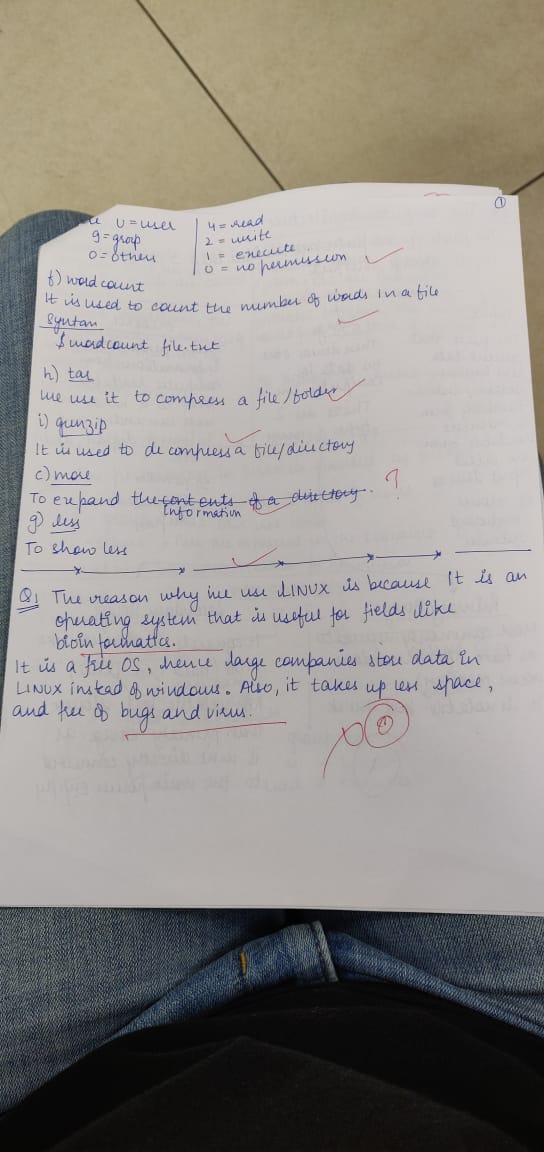 ①
U=user | 4=read
g=group | 2=write
o=others | 1=execute
0=no permission
f) word count
It is used to count the number of words in a file
Syntax
$ wordcount file.txt
h) tar
we use it to compress a file/folder
i) gunzip
It is used to decompress a file/directory
c) more
To expand the contents of a directory. ?
information
g) less
To show less
Q1 The reason why we use LINUX is because It is an
operating system that is useful for fields like
bioinformatics.
It is a free OS, hence large companies store data in
LINUX instead of windows. Also, it takes up less space,
and free of bugs and virus.